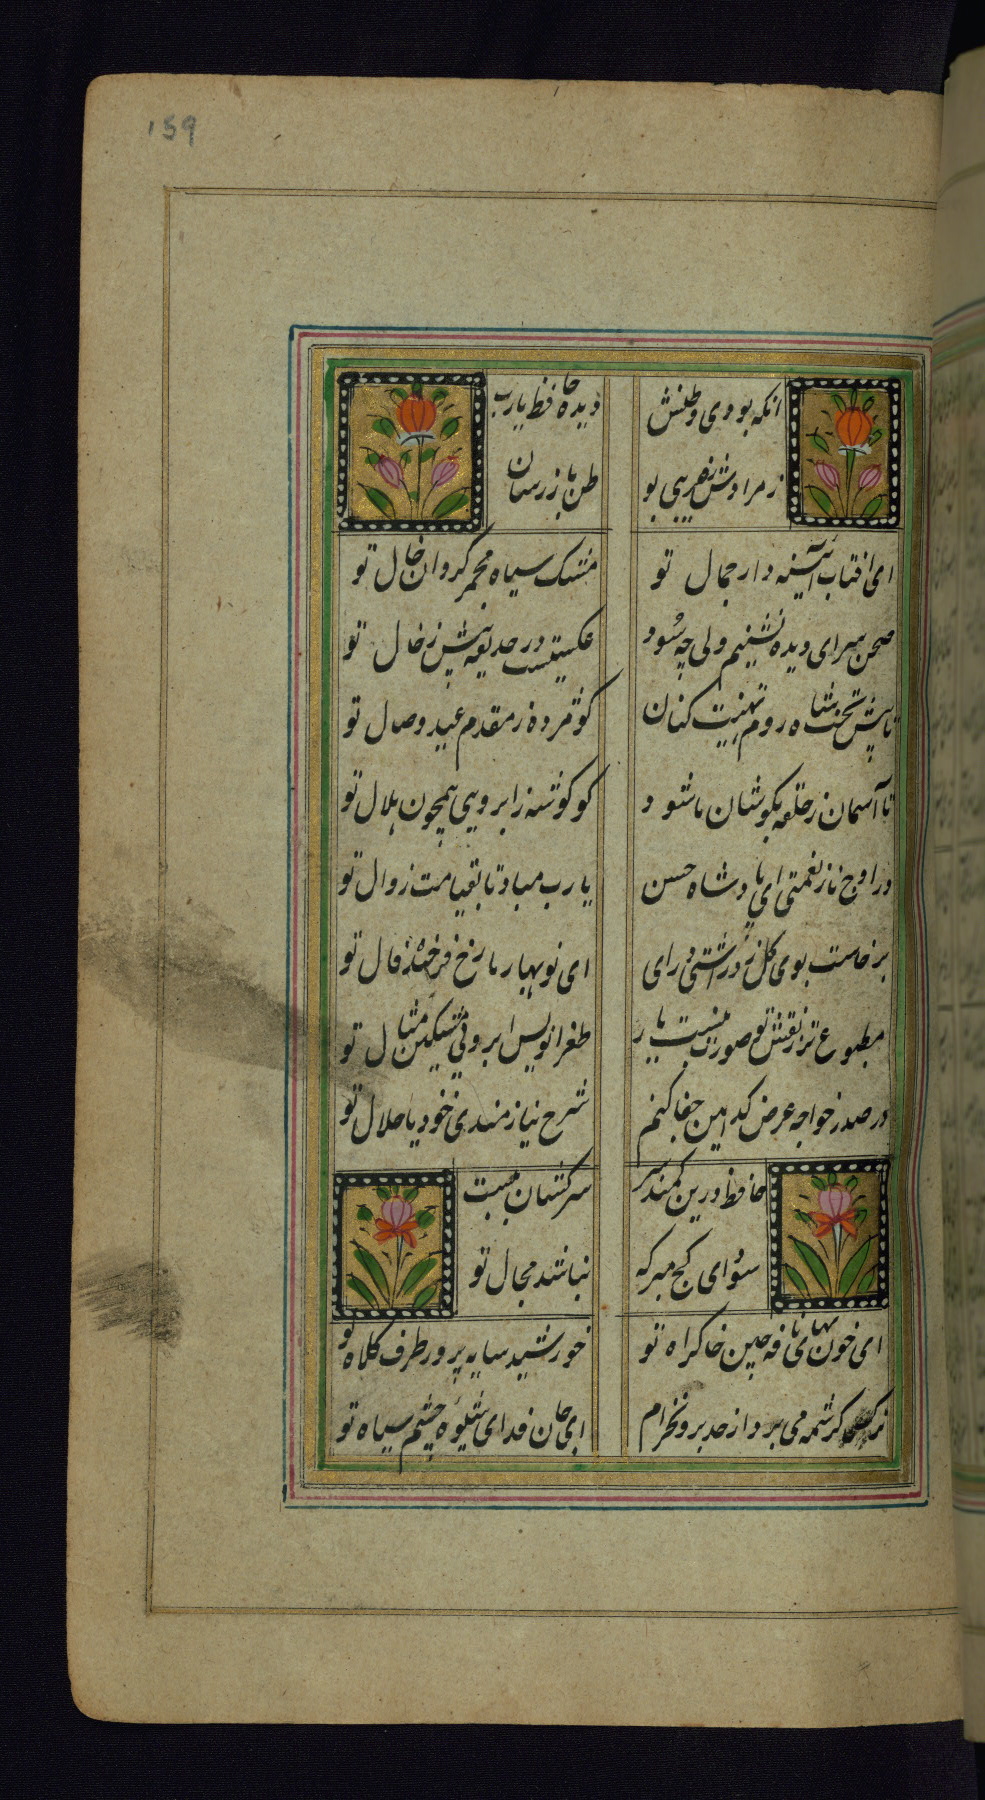 159
آنکه بودی وطنش دیده حافظ یارب
ز مرادش ز غریبی بو طن باز رسان
ای افتاب آئینه دار جمال تو مشک سیاه مجمر گردان خال تو
صحن سرای دیده نشینم ولی چه سود عکسیست در حدیقه بینش ز خال تو
تا پیش تخت شاه روم تهنیت کنان کو مژده ز مقدم عید وصال تو
تا آسمان ز حلقه بگوشان ما شود کو گوشه ز ابرویی همچون هلال تو
در اوج ناز نعمتی ای پادشاه حسن یا رب مباد تا بقیامت زوال تو
برخاست بوی گل ز در آشتی درای ای نوبهار ما رخ فرخنده فال تو
مطبوع تر ز نقش تو صورت نبست باز طغرانویس ابروئی مشکین مثال تو
در صدر خواجه عرض کدامین جفا کنم شرح نیازمندی خود یا ملال تو
حافظ درین کمند سر سرکشان بسیست
سودای کج مبر که نباشد مجال تو
ای خون بهای نافه چین خاک راه تو خورشید سایه پرور طرف کلاه تو
نرکس کرشمه می برد از حد برون خرام ای جان فدای شیوه چشم سیاه تو